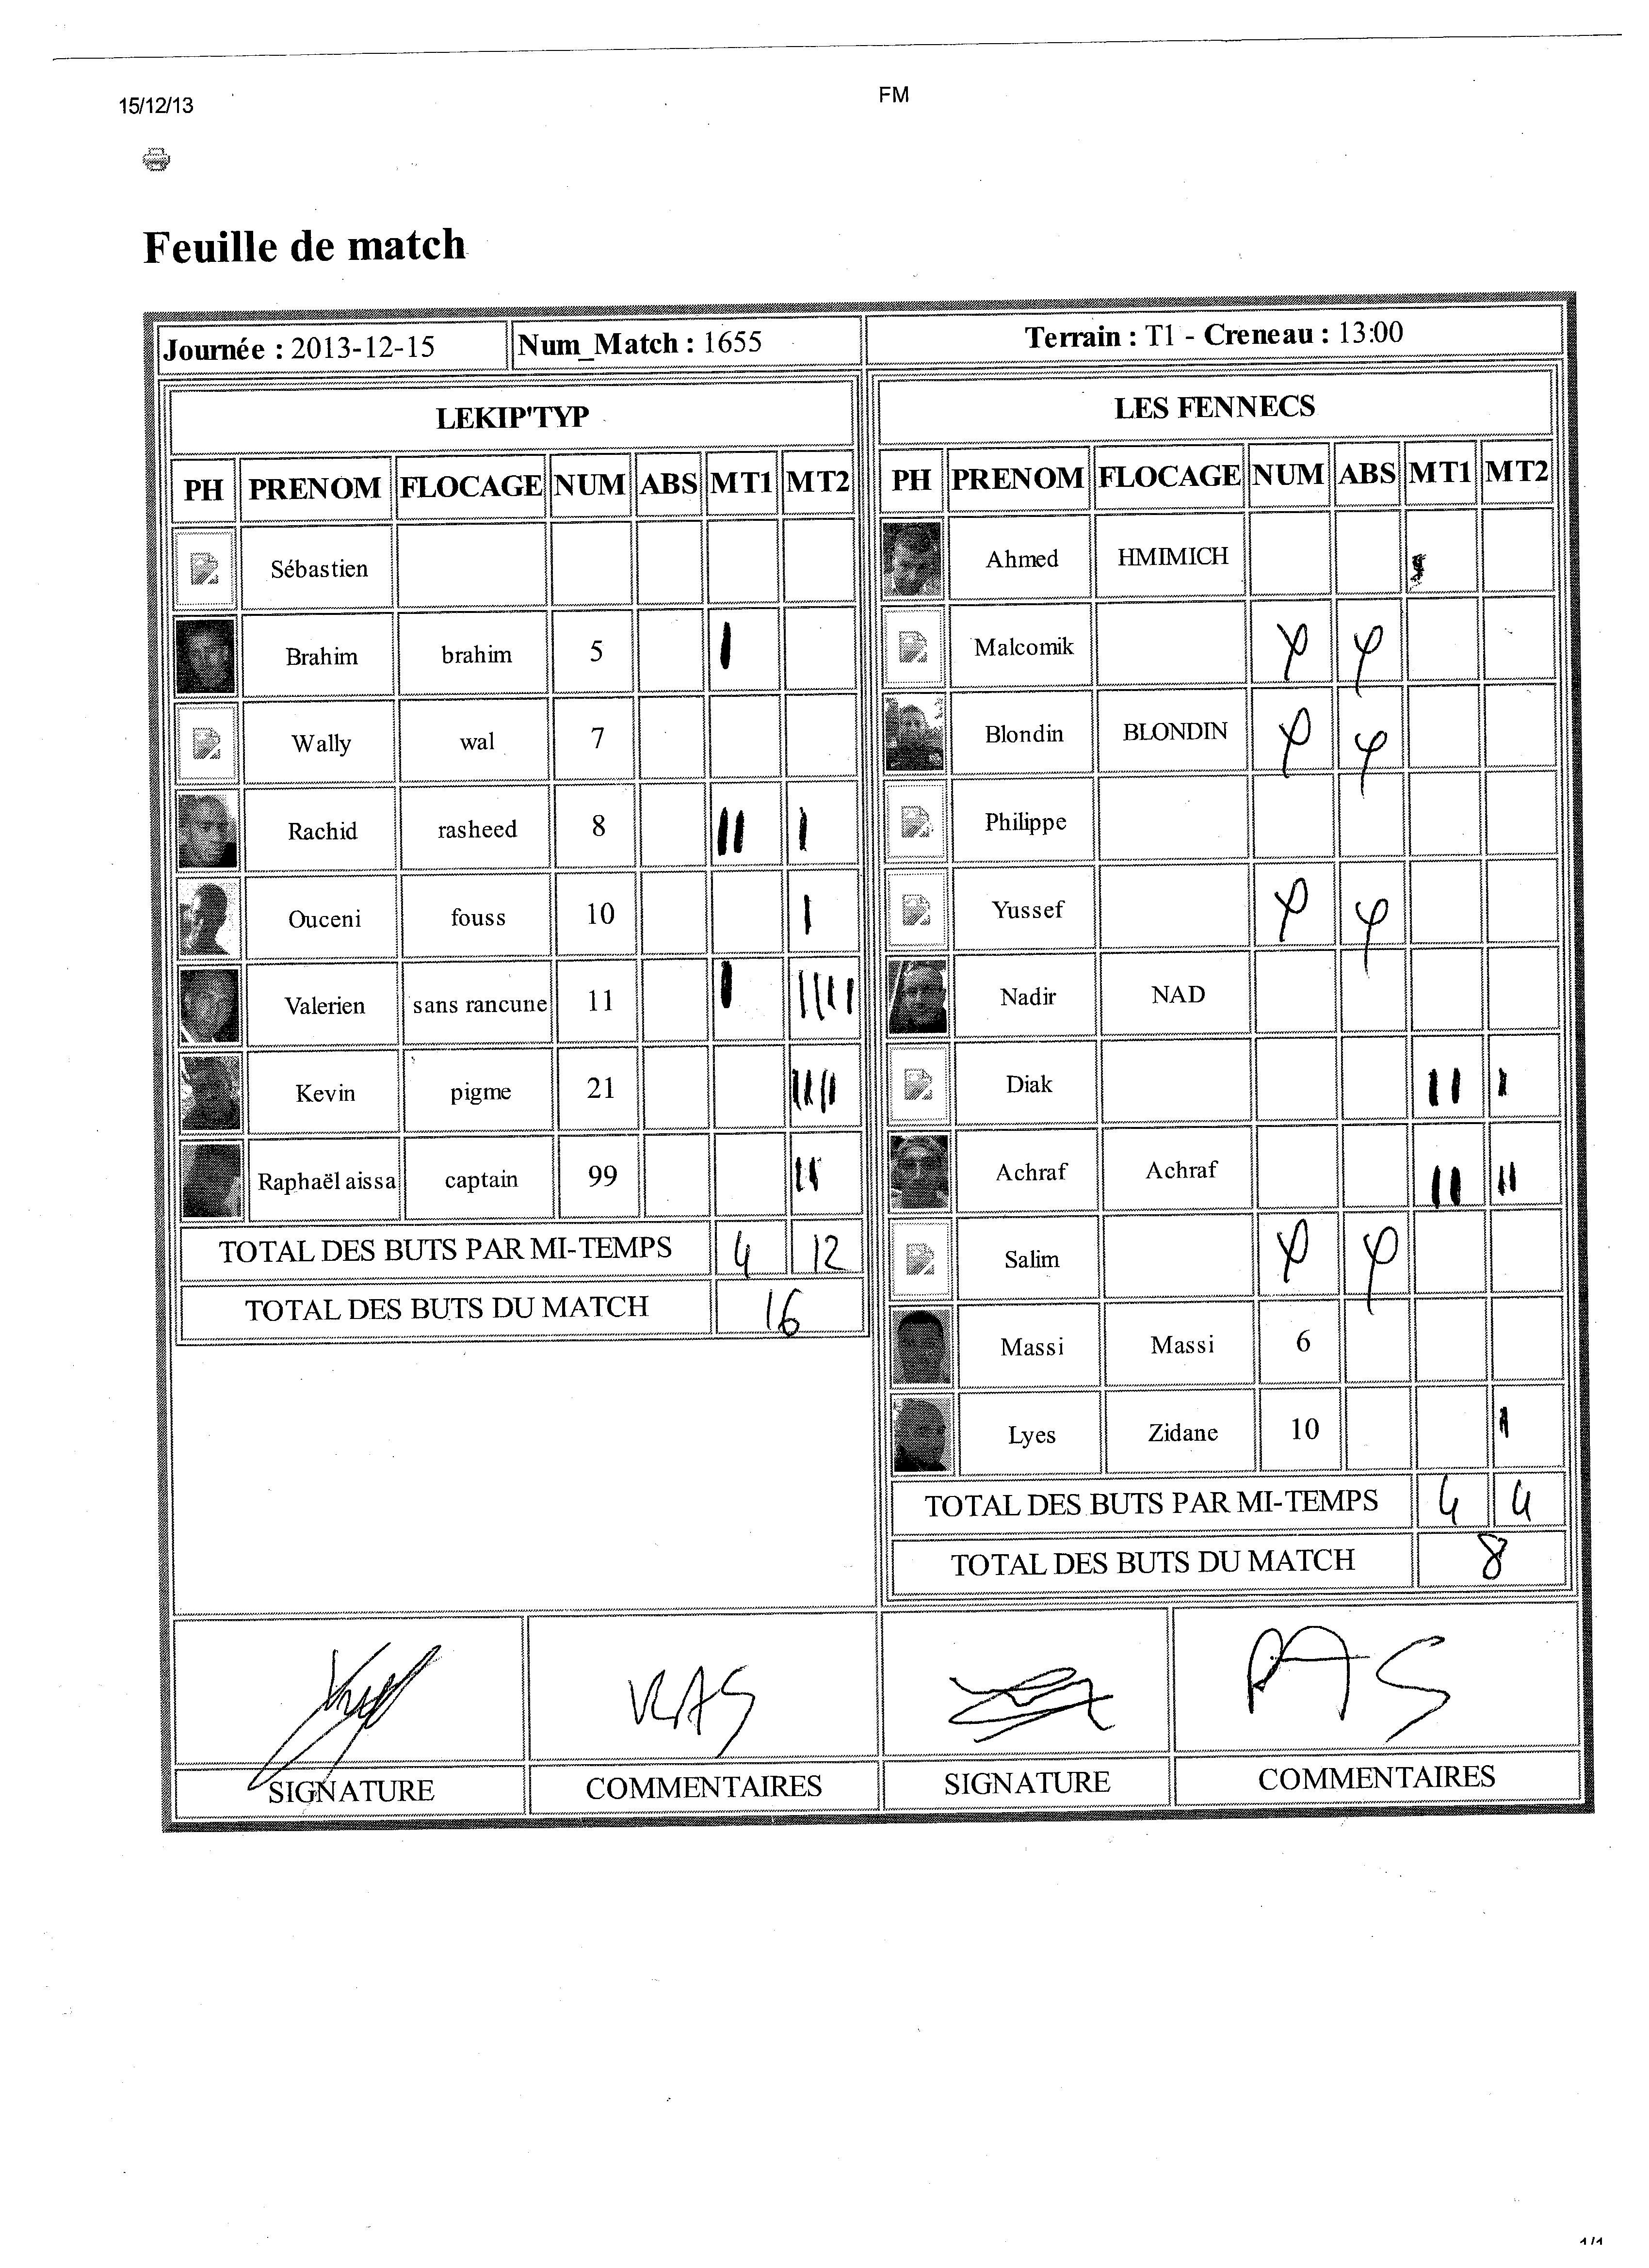 15/12/13 FM
Feuille de match
Journée : 2013-12-15 Num_Match : 1655 Terrain : T1 - Creneau : 13:00
LEKIP'TYP
PH PRENOM FLOCAGE NUM ABS MT1 MT2
Sébastien
Brahim brahim 5 I
Wally wal 7
Rachid rasheed 8 II I
Ouceni fouss 10 I
Valerien sans rancune 11 I IIIII
Kevin pigme 21 IIII
Raphaël aissa captain 99 II
TOTAL DES BUTS PAR MI-TEMPS 4 12
TOTAL DES BUTS DU MATCH 16
LES FENNECS
PH PRENOM FLOCAGE NUM ABS MT1 MT2
Ahmed HMIMICH
Malcomik φ φ
Blondin BLONDIN φ φ
Philippe
Yussef φ φ
Nadir NAD
Diak II I
Achraf Achraf II II
Salim φ φ
Massi Massi 6
Lyes Zidane 10 I
TOTAL DES BUTS PAR MI-TEMPS 4 4
TOTAL DES BUTS DU MATCH 8
RAS RAS
SIGNATURE COMMENTAIRES SIGNATURE COMMENTAIRES
1/1